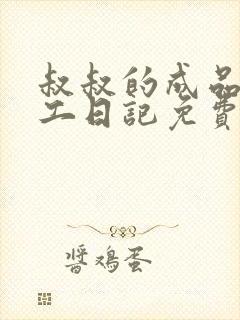 叔叔的成品
工日記免費
醬鸡蛋